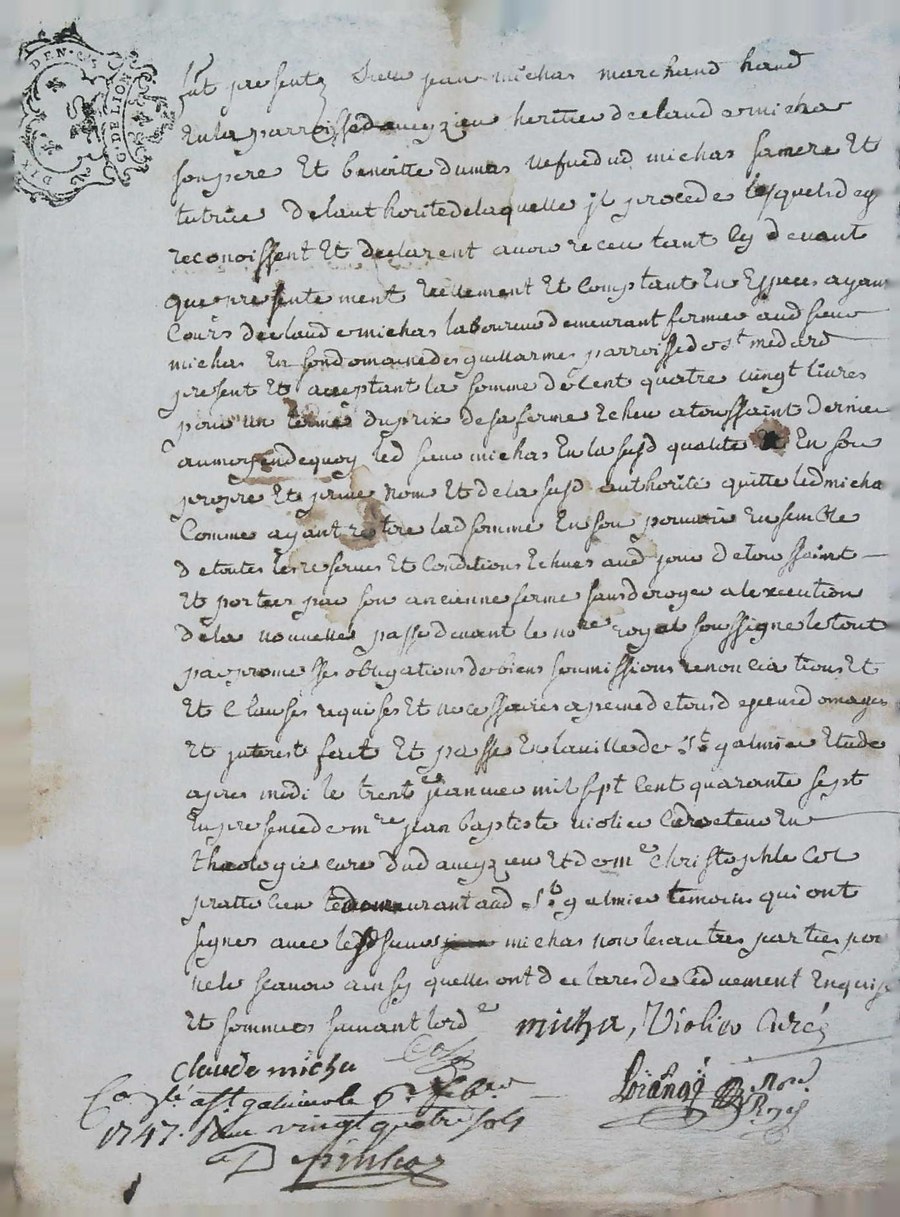 DIX DEN. G. DE LION
fut presentz Sieur jean michas marchand hand
En la parroisse daveyzieu heritier de claude micha
son pere Et benoitte dumas vefve dud michas sa mere Et
tutrice de lauthorite de laquelle jl procede lesquels de gy
reconoissent Et declarent avoir receu tant Cy devant
que presentement reellement Et Comptant En Especes ayant
Cours de claude michas laboureur demeurant fermier aud sieur
michas En son domaine des guillarmes parroisse de st medard
present Et acceptant la somme de Cent quatre vingt livres
pour un terme du prix de sa ferme Echeu a toussaint dernier
au moyen de quoy led sieur michas En la susd qualite Et En son
propre Et prive nom Et de la susd authorité quitte led micha
Comme ayant retire lad somme En son pouvoir Ensemble
de toutes les reserves Et Conditions Echues aud jour de toussaint
Et portees par son ancienne ferme sans deroger a lexecution
de la nouvelle passé devant le nore royal soussigne le tout
par promesses obligations de biens soumissions renonciations Et
Et Clauses requises Et necessaires a peine de tous depens domages
Et interest fait Et passé En la ville de St galmier Etude
apres midi le trente janvier mil sept Cent quarante sept
En presence de mre jean baptiste violier docteur En
theologie cure dud aveyzieu Et de me Christophle Col
pratticien demeurant aud St galmier temoins qui ont
signes avec led sieur michas non les autres parties pour
ne le scavoir ainsy quelles ont declares de Ce duement Enquises
Et sommees suivant lorde micha, Violier Curé
claude micha Col
Conlé a st galmier le 6e febver
1747. Reçu vingt quatre sols
nore Royal